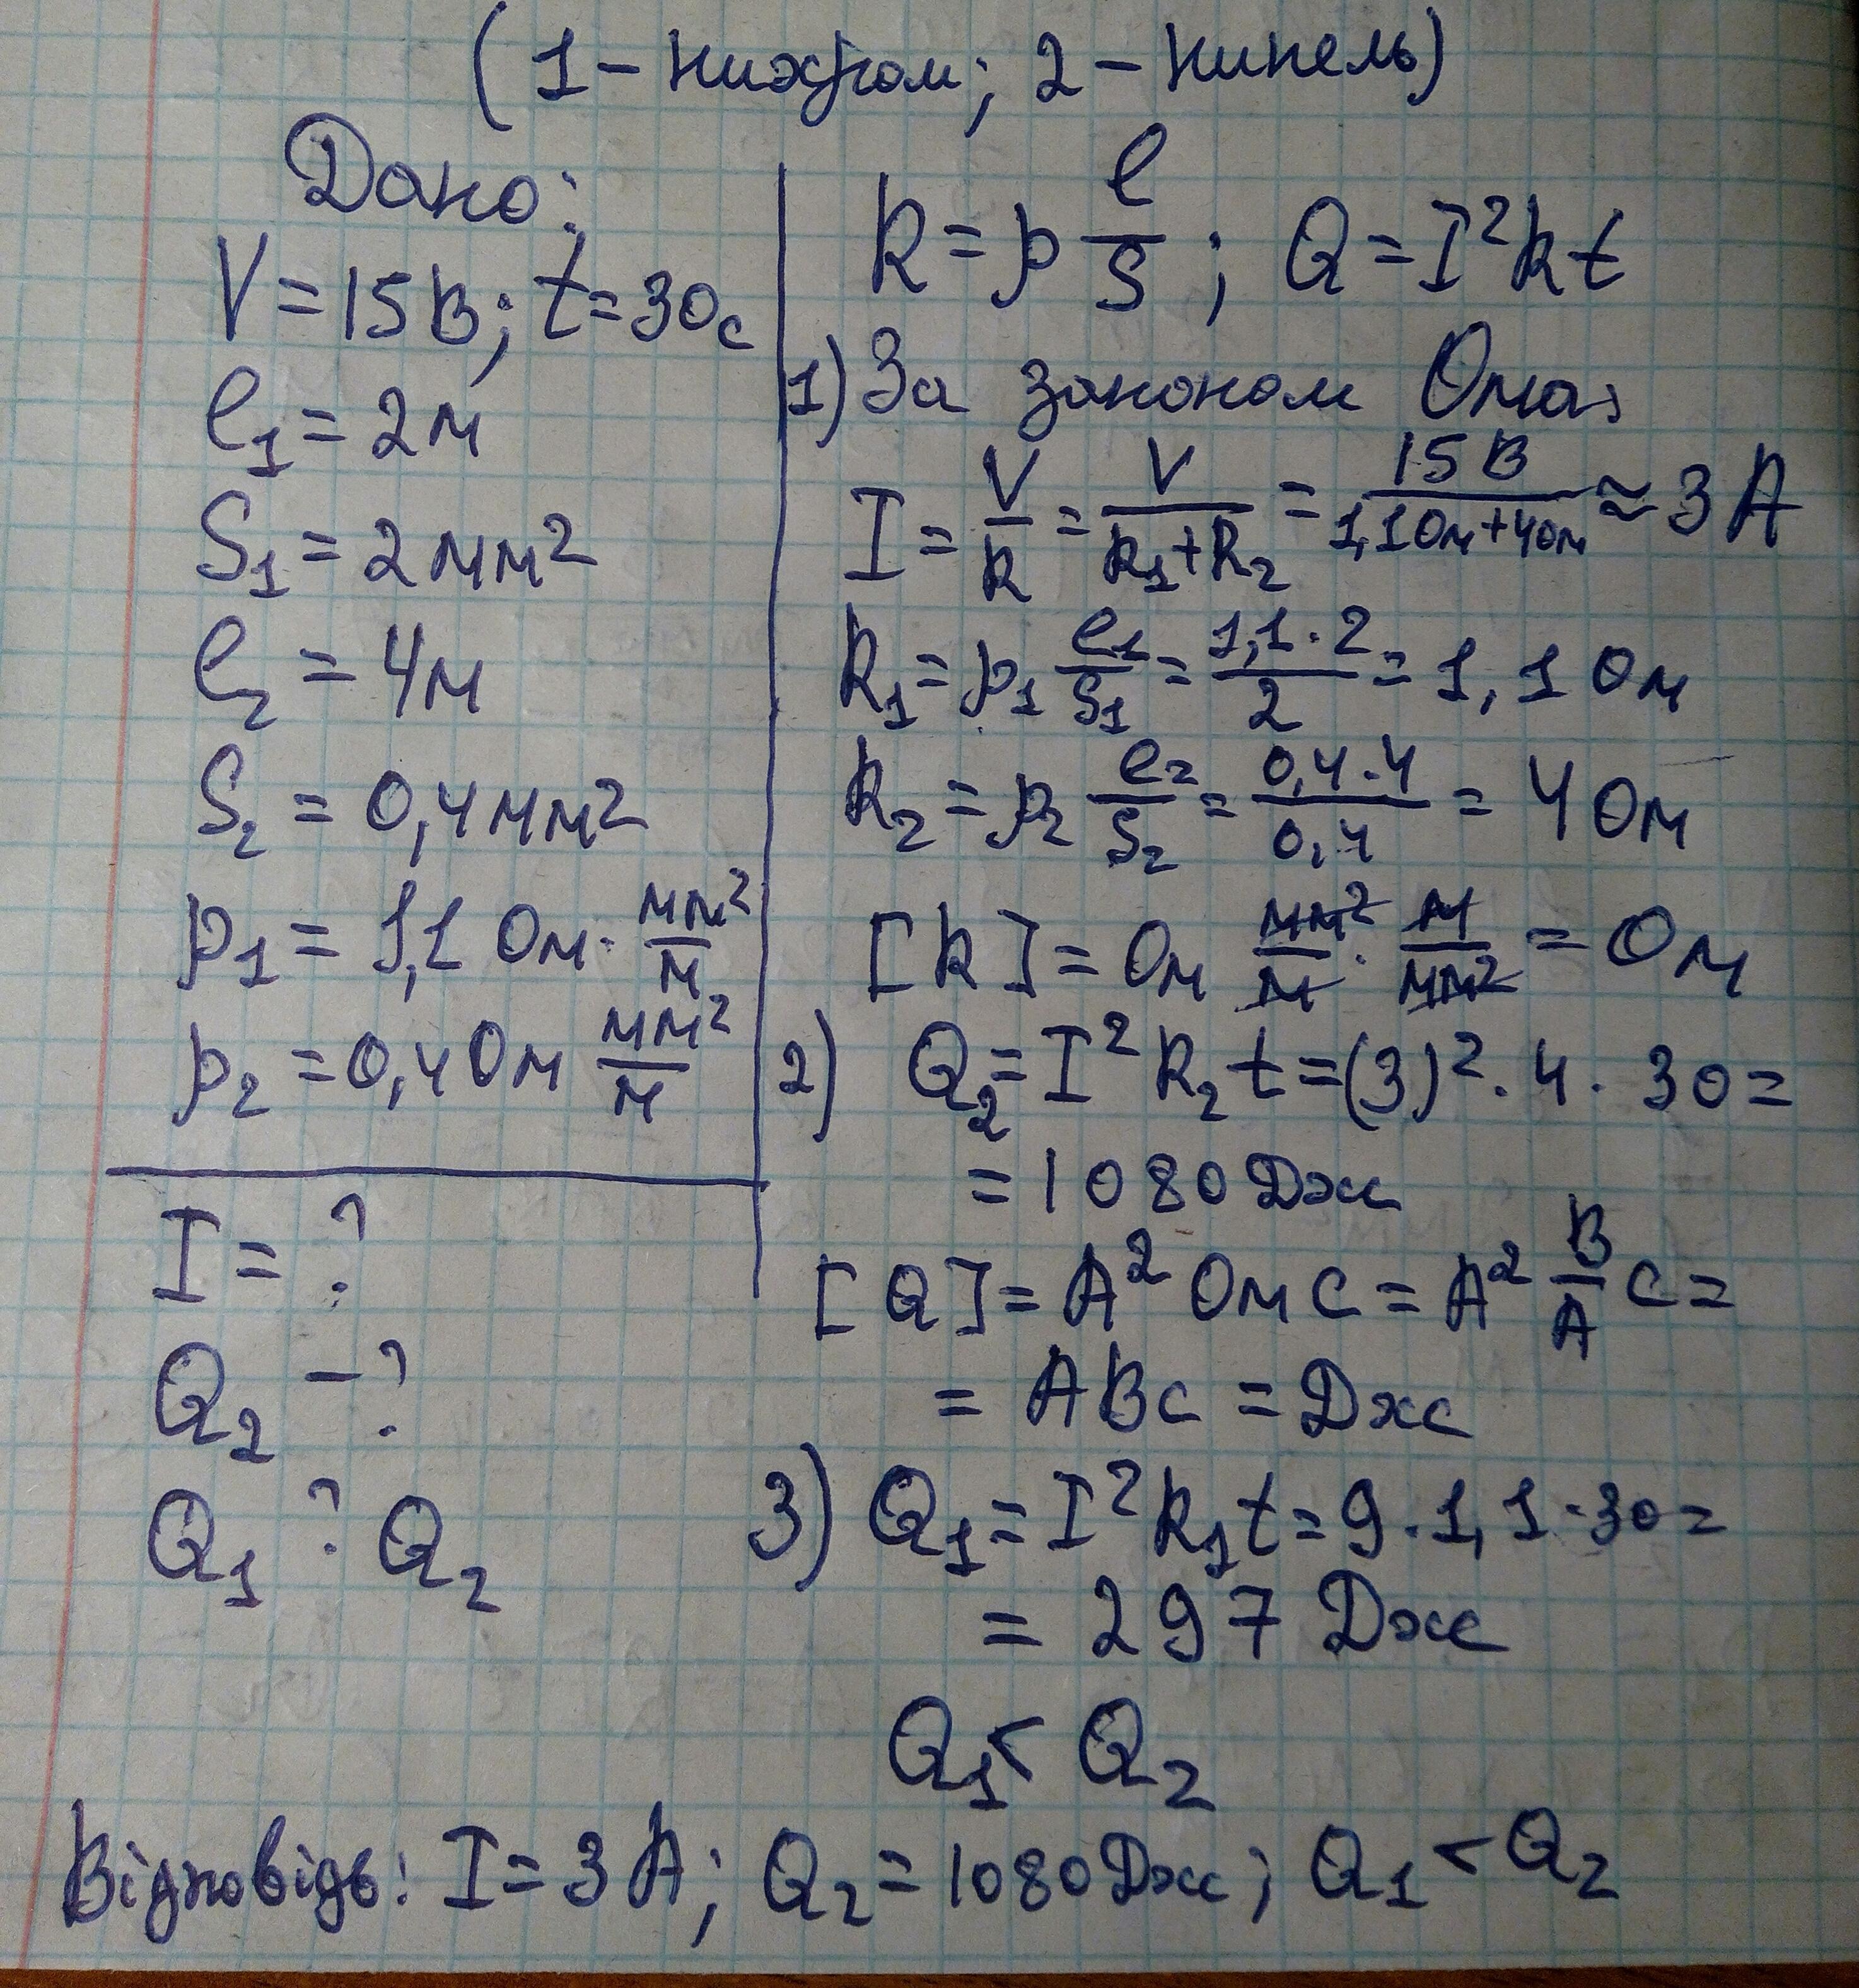 (1 – нихром; 2 – нинель)
Дано:
V = 15 В; t = 30с
l₁ = 2м
S₁ = 2 мм²
l₂ = 4м
S₂ = 0,4 мм²
ρ₁ = 1,1 Ом · мм²/м
ρ₂ = 0,4 Ом мм²/м
I = ?
Q₂ – ?
Q₁ ? Q₂
R = ρ l/S ; Q = I²Rt
1) За законом Ома,
I = V/R = V/(R₁+R₂) = 15 В/(1,1 Ом + 4 Ом) ≈ 3 А
R₁ = ρ₁ l₁/S₁ = (1,1 · 2)/2 = 1,1 Ом
R₂ = ρ₂ l₂/S₂ = (0,4 · 4)/0,4 = 4 Ом
[R] = Ом мм²/м · м/мм² = Ом
2) Q₂ = I² R₂ t = (3)² · 4 · 30 =
= 1080 Дж
[Q] = А² Ом с = А² В/А с =
= А В с = Дж
3) Q₁ = I² R₁ t = 9 · 1,1 · 30 =
= 297 Дж
Q₁ < Q₂
Відповідь: I = 3 А; Q₂ = 1080 Дж; Q₁ < Q₂